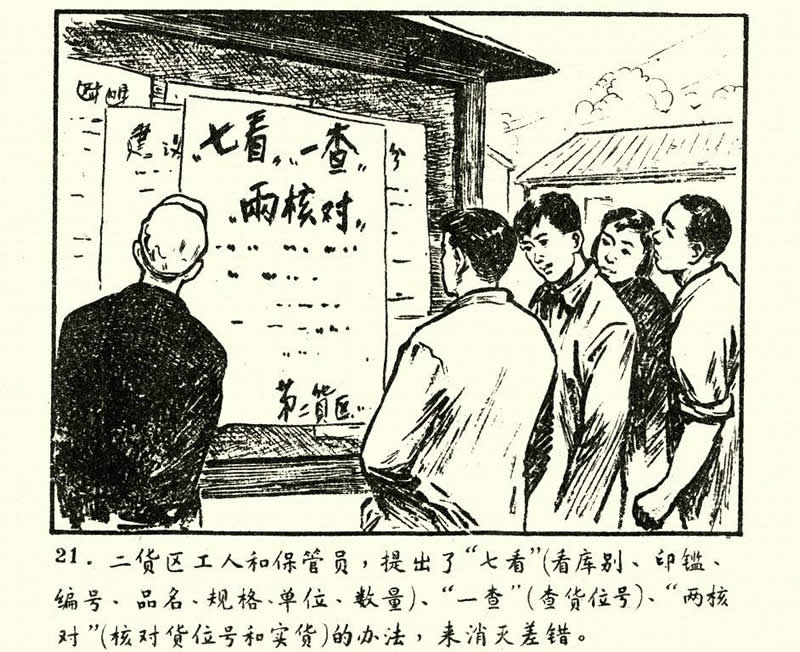 建议
"七看""一查"
"兩核对"
第二货区
21．二货区工人和保管员，提出了“七看”(看库别、印鑑、
编号、品名、规格、单位、数量)、“一查”(查货位号)、“两核
对”(核对货位号和实货)的办法，来消灭差错。